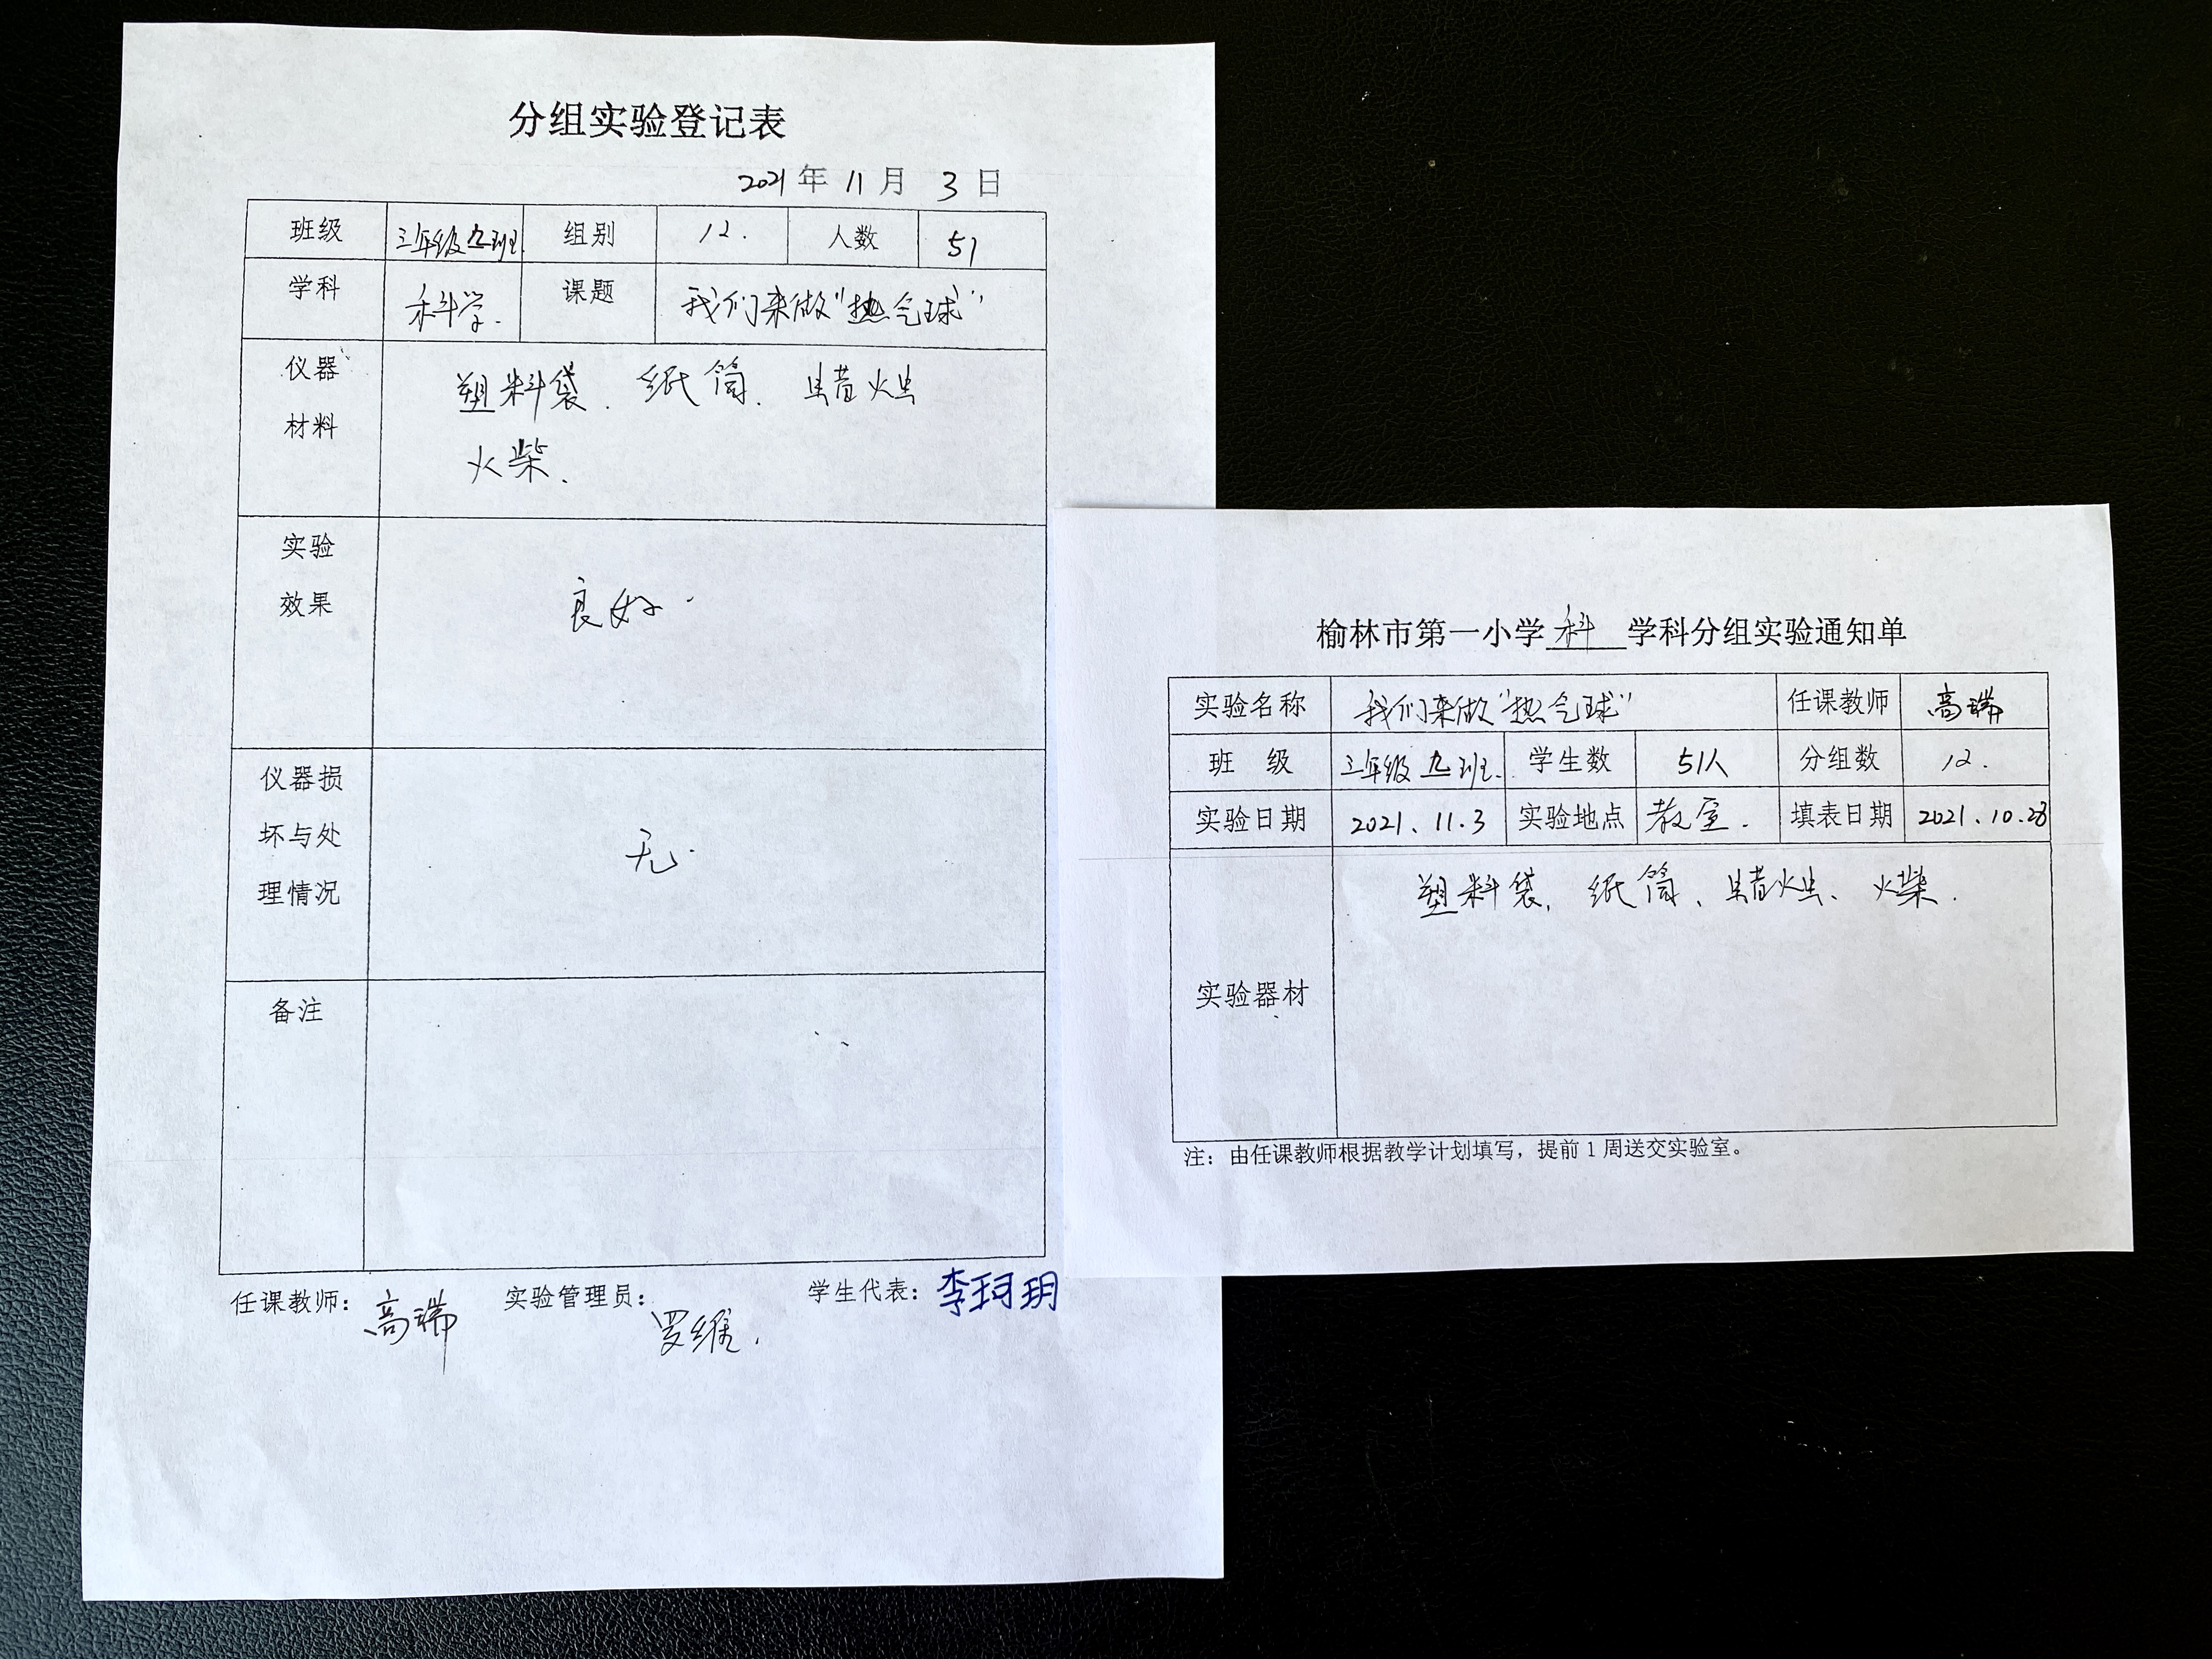 分组实验登记表
2021年11月3日
班级 三年级九班 组别 12. 人数 51
学科 科学. 课题 我们来做"热气球"
仪器材料 塑料袋、纸筒、蜡烛
火柴.
实验效果 良好.
仪器损坏与处理情况 无.
备注
任课教师：高瑞 实验管理员：罗维. 学生代表：李珂玥
榆林市第一小学科学科分组实验通知单
实验名称 我们来做"热气球" 任课教师 高瑞
班 级 三年级九班. 学生数 51人 分组数 12.
实验日期 2021.11.3 实验地点 教室. 填表日期 2021.10.28
实验器材 塑料袋、纸筒、蜡烛、火柴.
注：由任课教师根据教学计划填写，提前1周送交实验室。